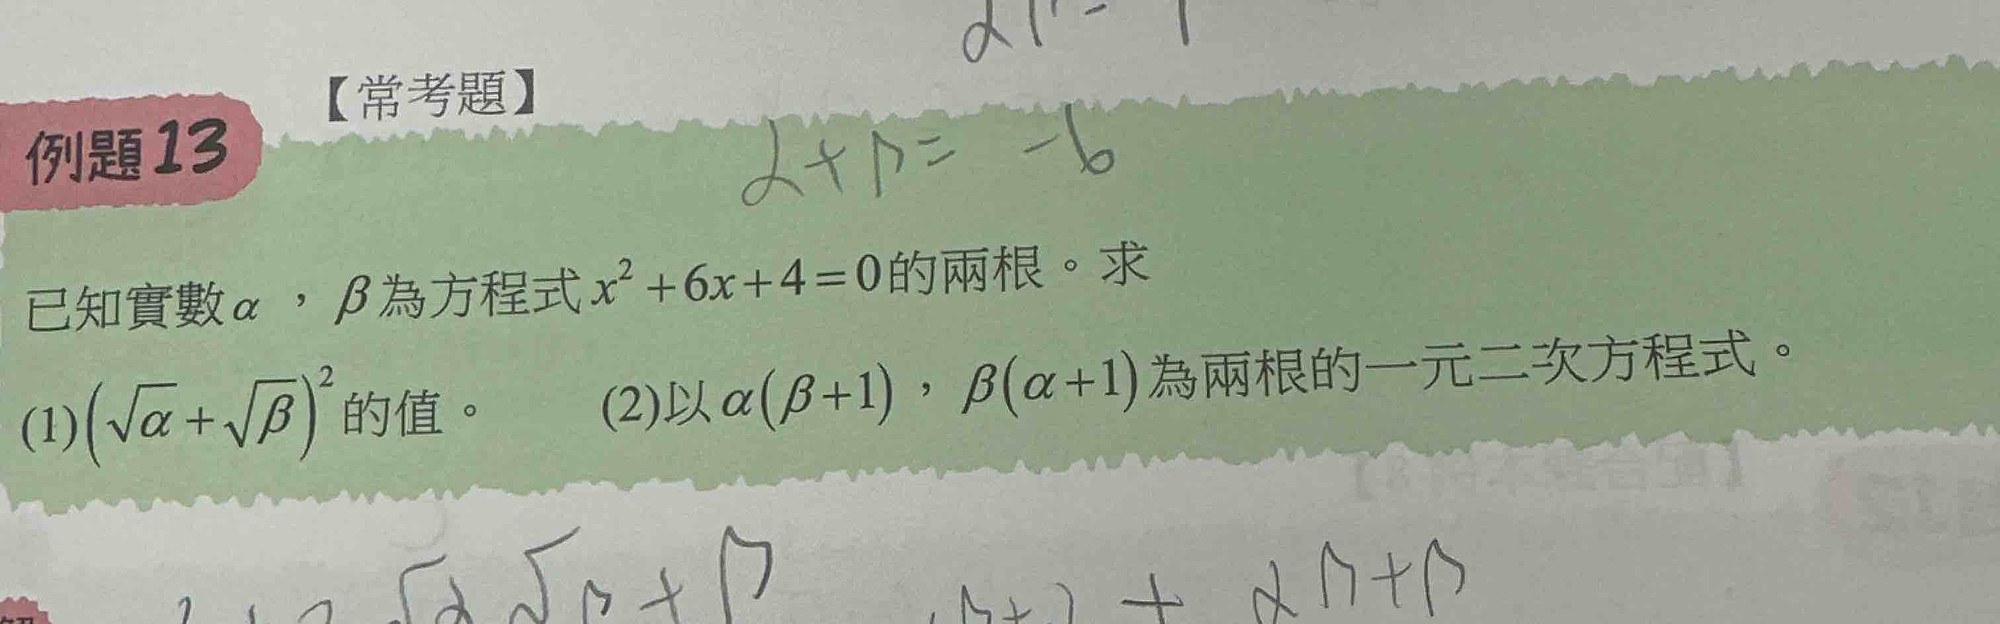 【常考題】
例題13
α+β= -6
已知實數α，β為方程式x²+6x+4=0的兩根。求
(1)(√α+√β)²的值。 (2)以α(β+1)，β(α+1)為兩根的一元二次方程式。
√α√β+β
+ αβ+β